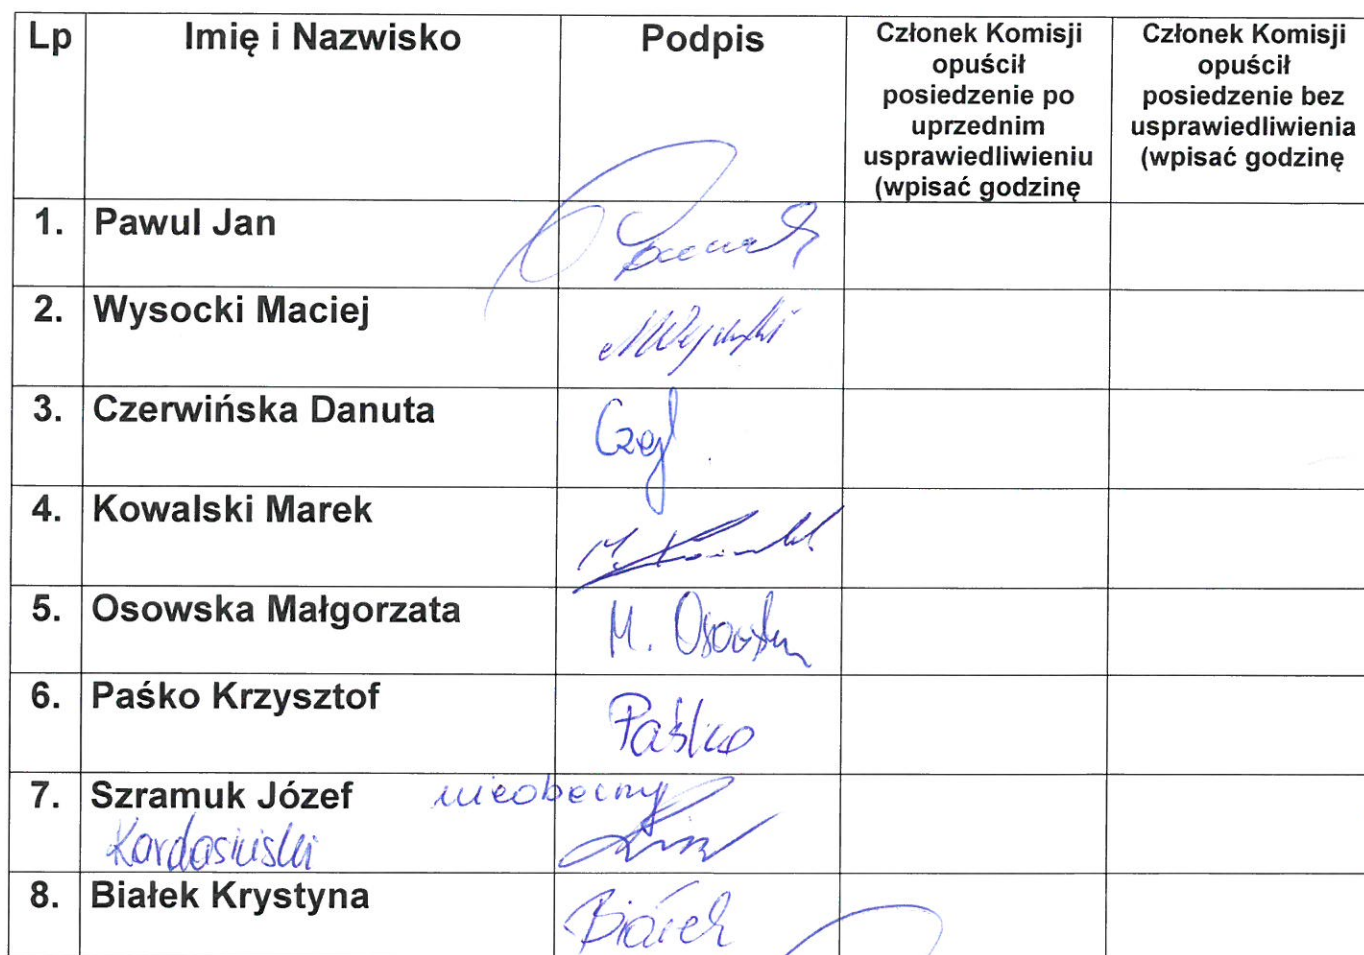 Lp Imię i Nazwisko Podpis Członek Komisji opuścił posiedzenie po uprzednim usprawiedliwieniu (wpisać godzinę Członek Komisji opuścił posiedzenie bez usprawiedliwienia (wpisać godzinę
1. Pawul Jan
2. Wysocki Maciej
3. Czerwińska Danuta
4. Kowalski Marek
5. Osowska Małgorzata M. Osowska
6. Paśko Krzysztof Paśko
7. Szramuk Józef nieobecny
Kardasiński
8. Białek Krystyna Białek